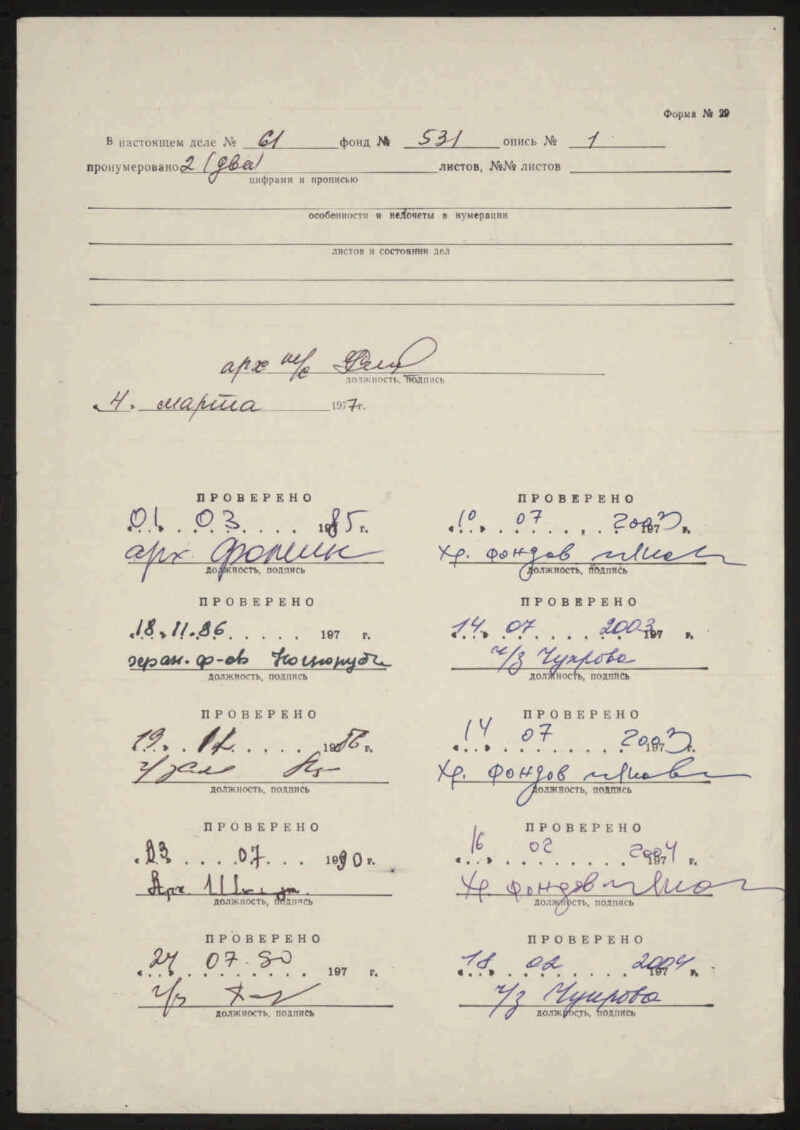 Форма № 29
В настоящем деле № 61 фонд № 531 опись № 1
пронумеровано 2 (два) листов, №№ листов
цифрами и прописью
особенности и недочеты в нумерации
листов и состоянии дел
арх
должность, подпись
4. марта 1977г.
ПРОВЕРЕНО
01 03 1985 г.
арх. Фомин
должность, подпись
ПРОВЕРЕНО
18.11.86 197 г.
хран. ф-ов
должность, подпись
ПРОВЕРЕНО
19. 1986 г.
ч/зал
должность, подпись
ПРОВЕРЕНО
23 07. 1990 г.
Арх.
должность, подпись
ПРОВЕРЕНО
24 07 90 197 г.
ч/з
должность, подпись
ПРОВЕРЕНО
10 07 2003 г.
Хр. фондов
должность, подпись
ПРОВЕРЕНО
14. 07 2003 197 г.
ч/з Чупрова
должность, подпись
ПРОВЕРЕНО
14 07 2003 197 г.
Хр. фондов
должность, подпись
ПРОВЕРЕНО
16 02 2004 197 г.
Хр. фондов
должность, подпись
ПРОВЕРЕНО
18 02 2004 197 г.
ч/з Чупрова
должность, подпись